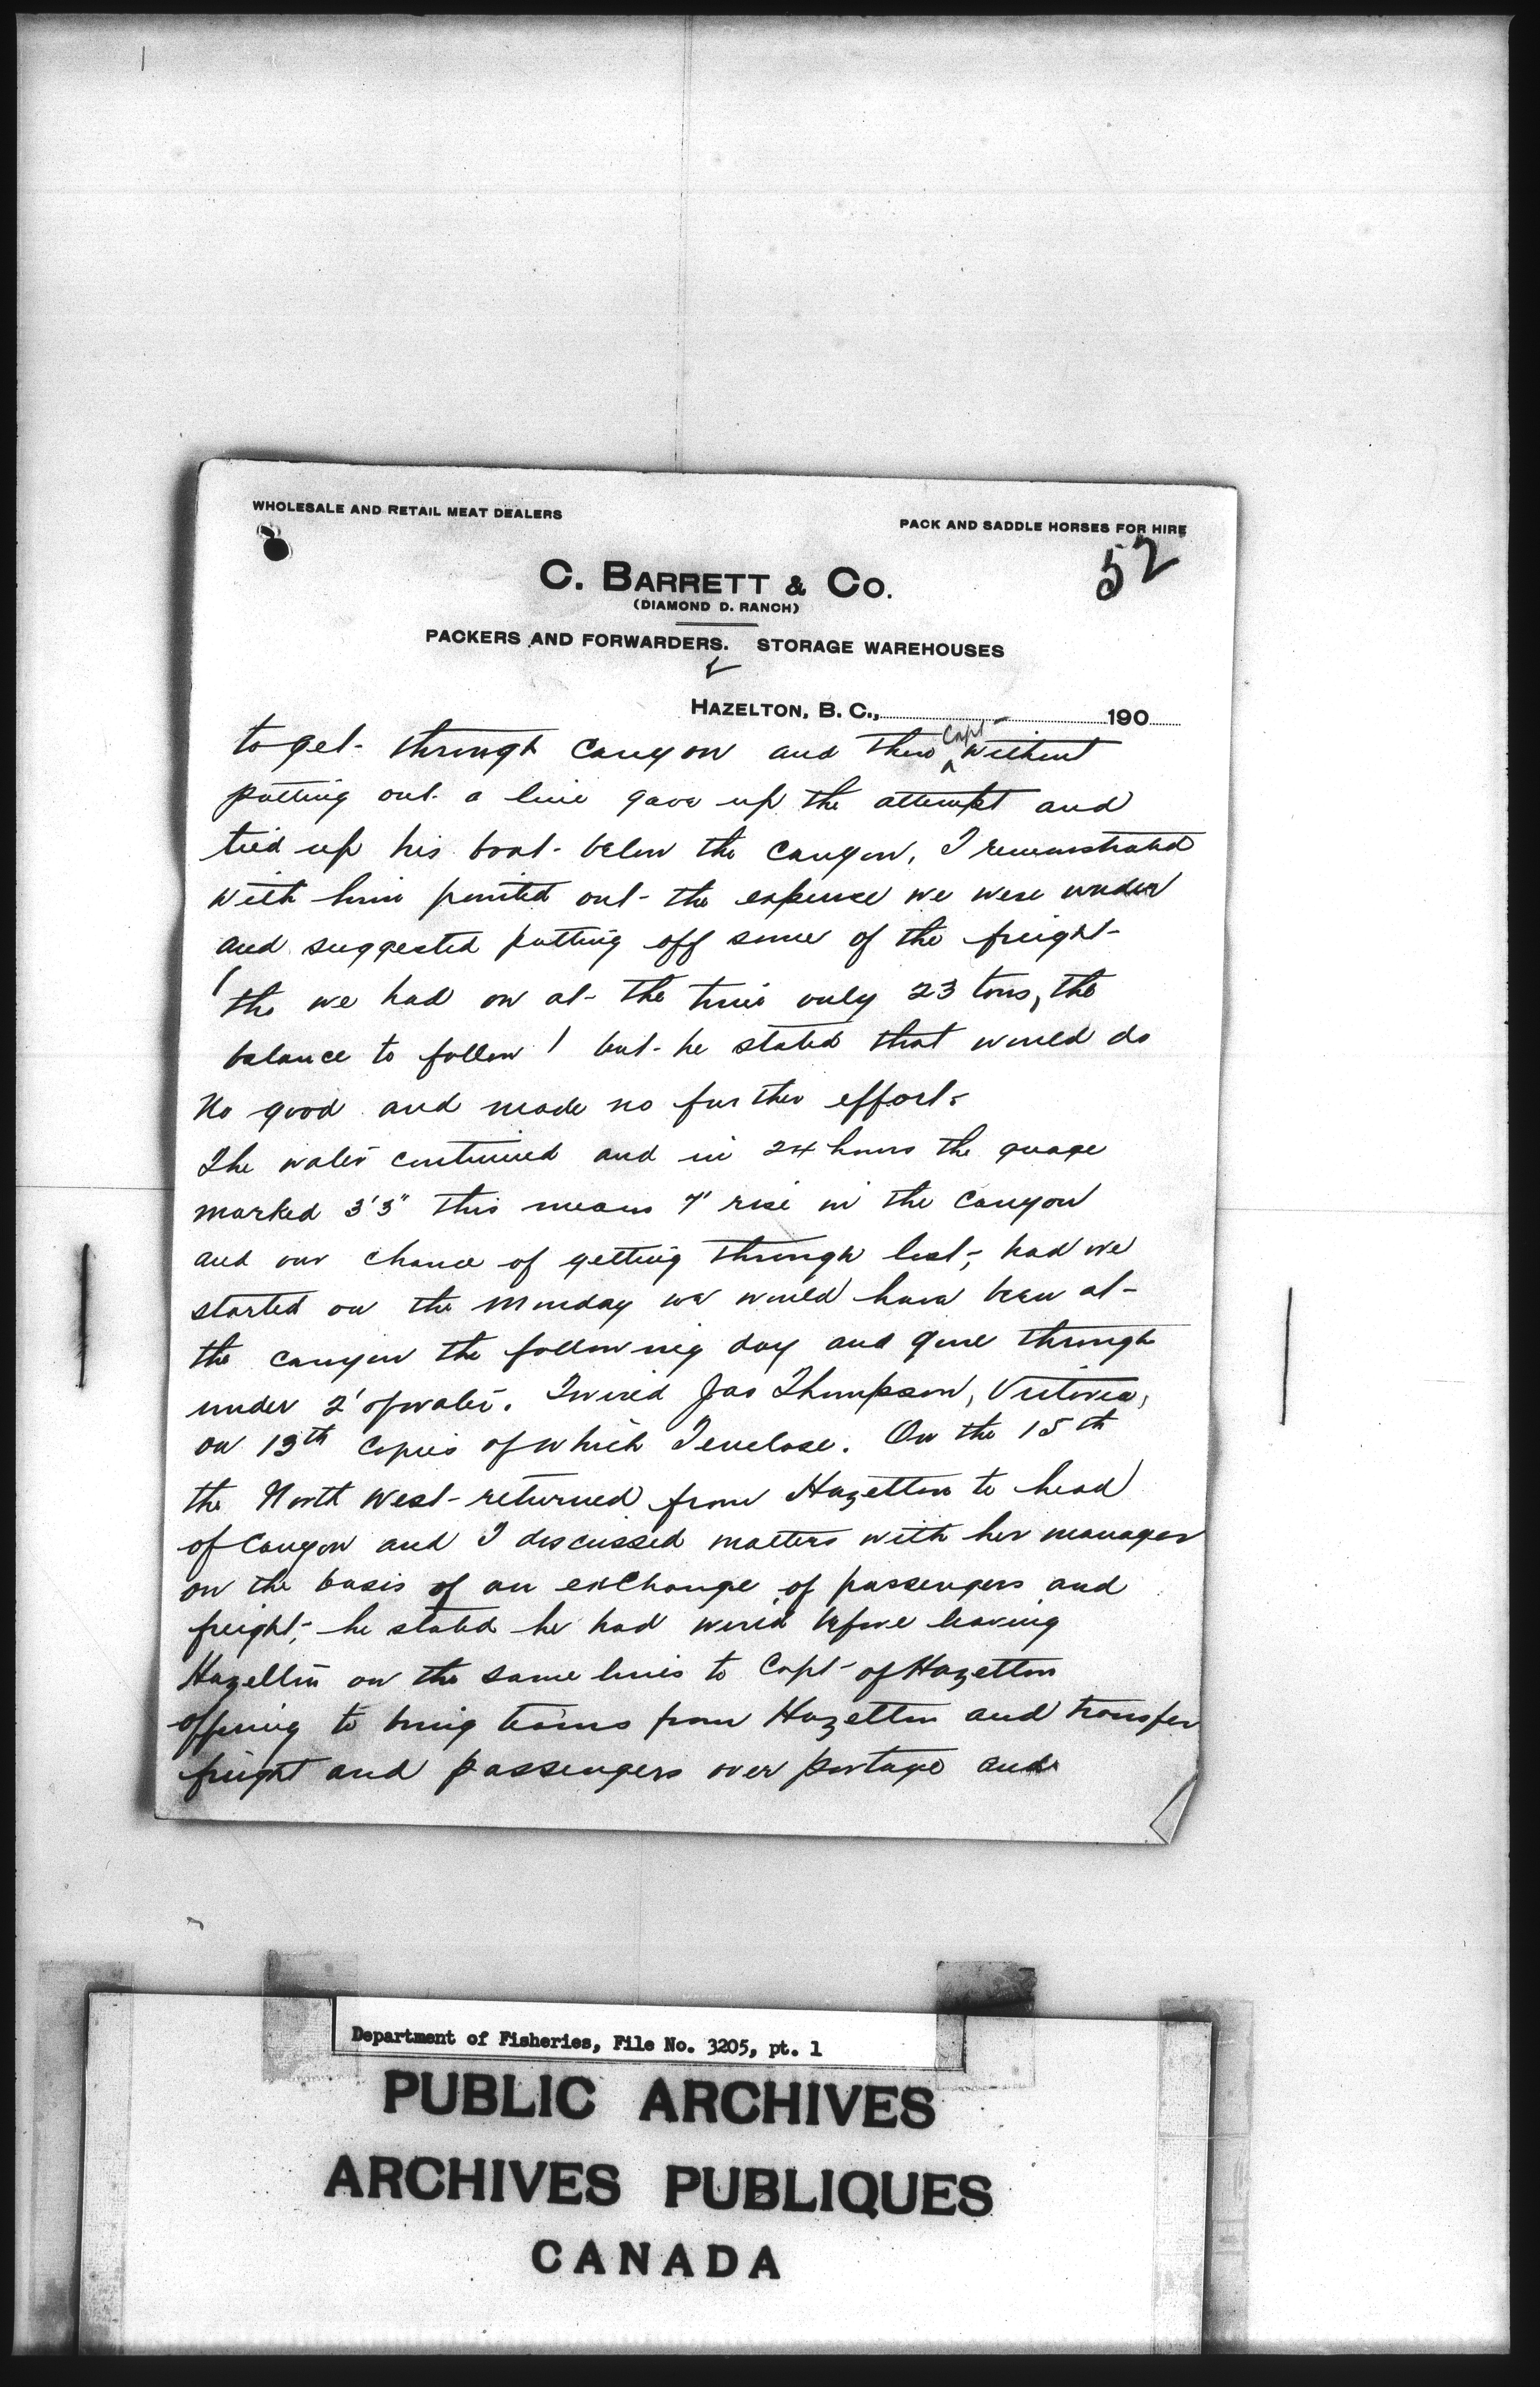 WHOLESALE AND RETAIL MEAT DEALERS
PACK AND SADDLE HORSES FOR HIRE
52
C. BARRETT & Co.
(DIAMOND D. RANCH)
PACKERS AND FORWARDERS. STORAGE WAREHOUSES
HAZELTON, B. C., 190
to get through Canyon and then Capt without
putting out a line gave up the attempt and
tied up his boat below the Canyon, I remonstrated
with him pointed out the expense we were under
and suggested putting off some of the freight
(tho we had on at the time only 23 tons, the
balance to follow) but he stated that would do
no good and made no further effort.
The water continued and in 24 hours the guage
marked 3'3" this means 7' rise in the Canyon
and our chance of getting through lost, had we
started on the Monday we would have been at
the canyon the following day and gone through
under 2' of water. I wired Jas Thompson, Victoria,
on 13th copies of which I enclose. On the 15th
the North West returned from Hazelton to head
of Canyon and I discussed matters with her manager
on the basis of an exchange of passengers and
freight, he stated he had wired before leaving
Hazelton on the same lines to Capt of Hazelton
offering to bring teams from Hazelton and transfer
freight and passengers over portage and
Department of Fisheries, File No. 3205, pt. 1
PUBLIC ARCHIVES
ARCHIVES PUBLIQUES
CANADA